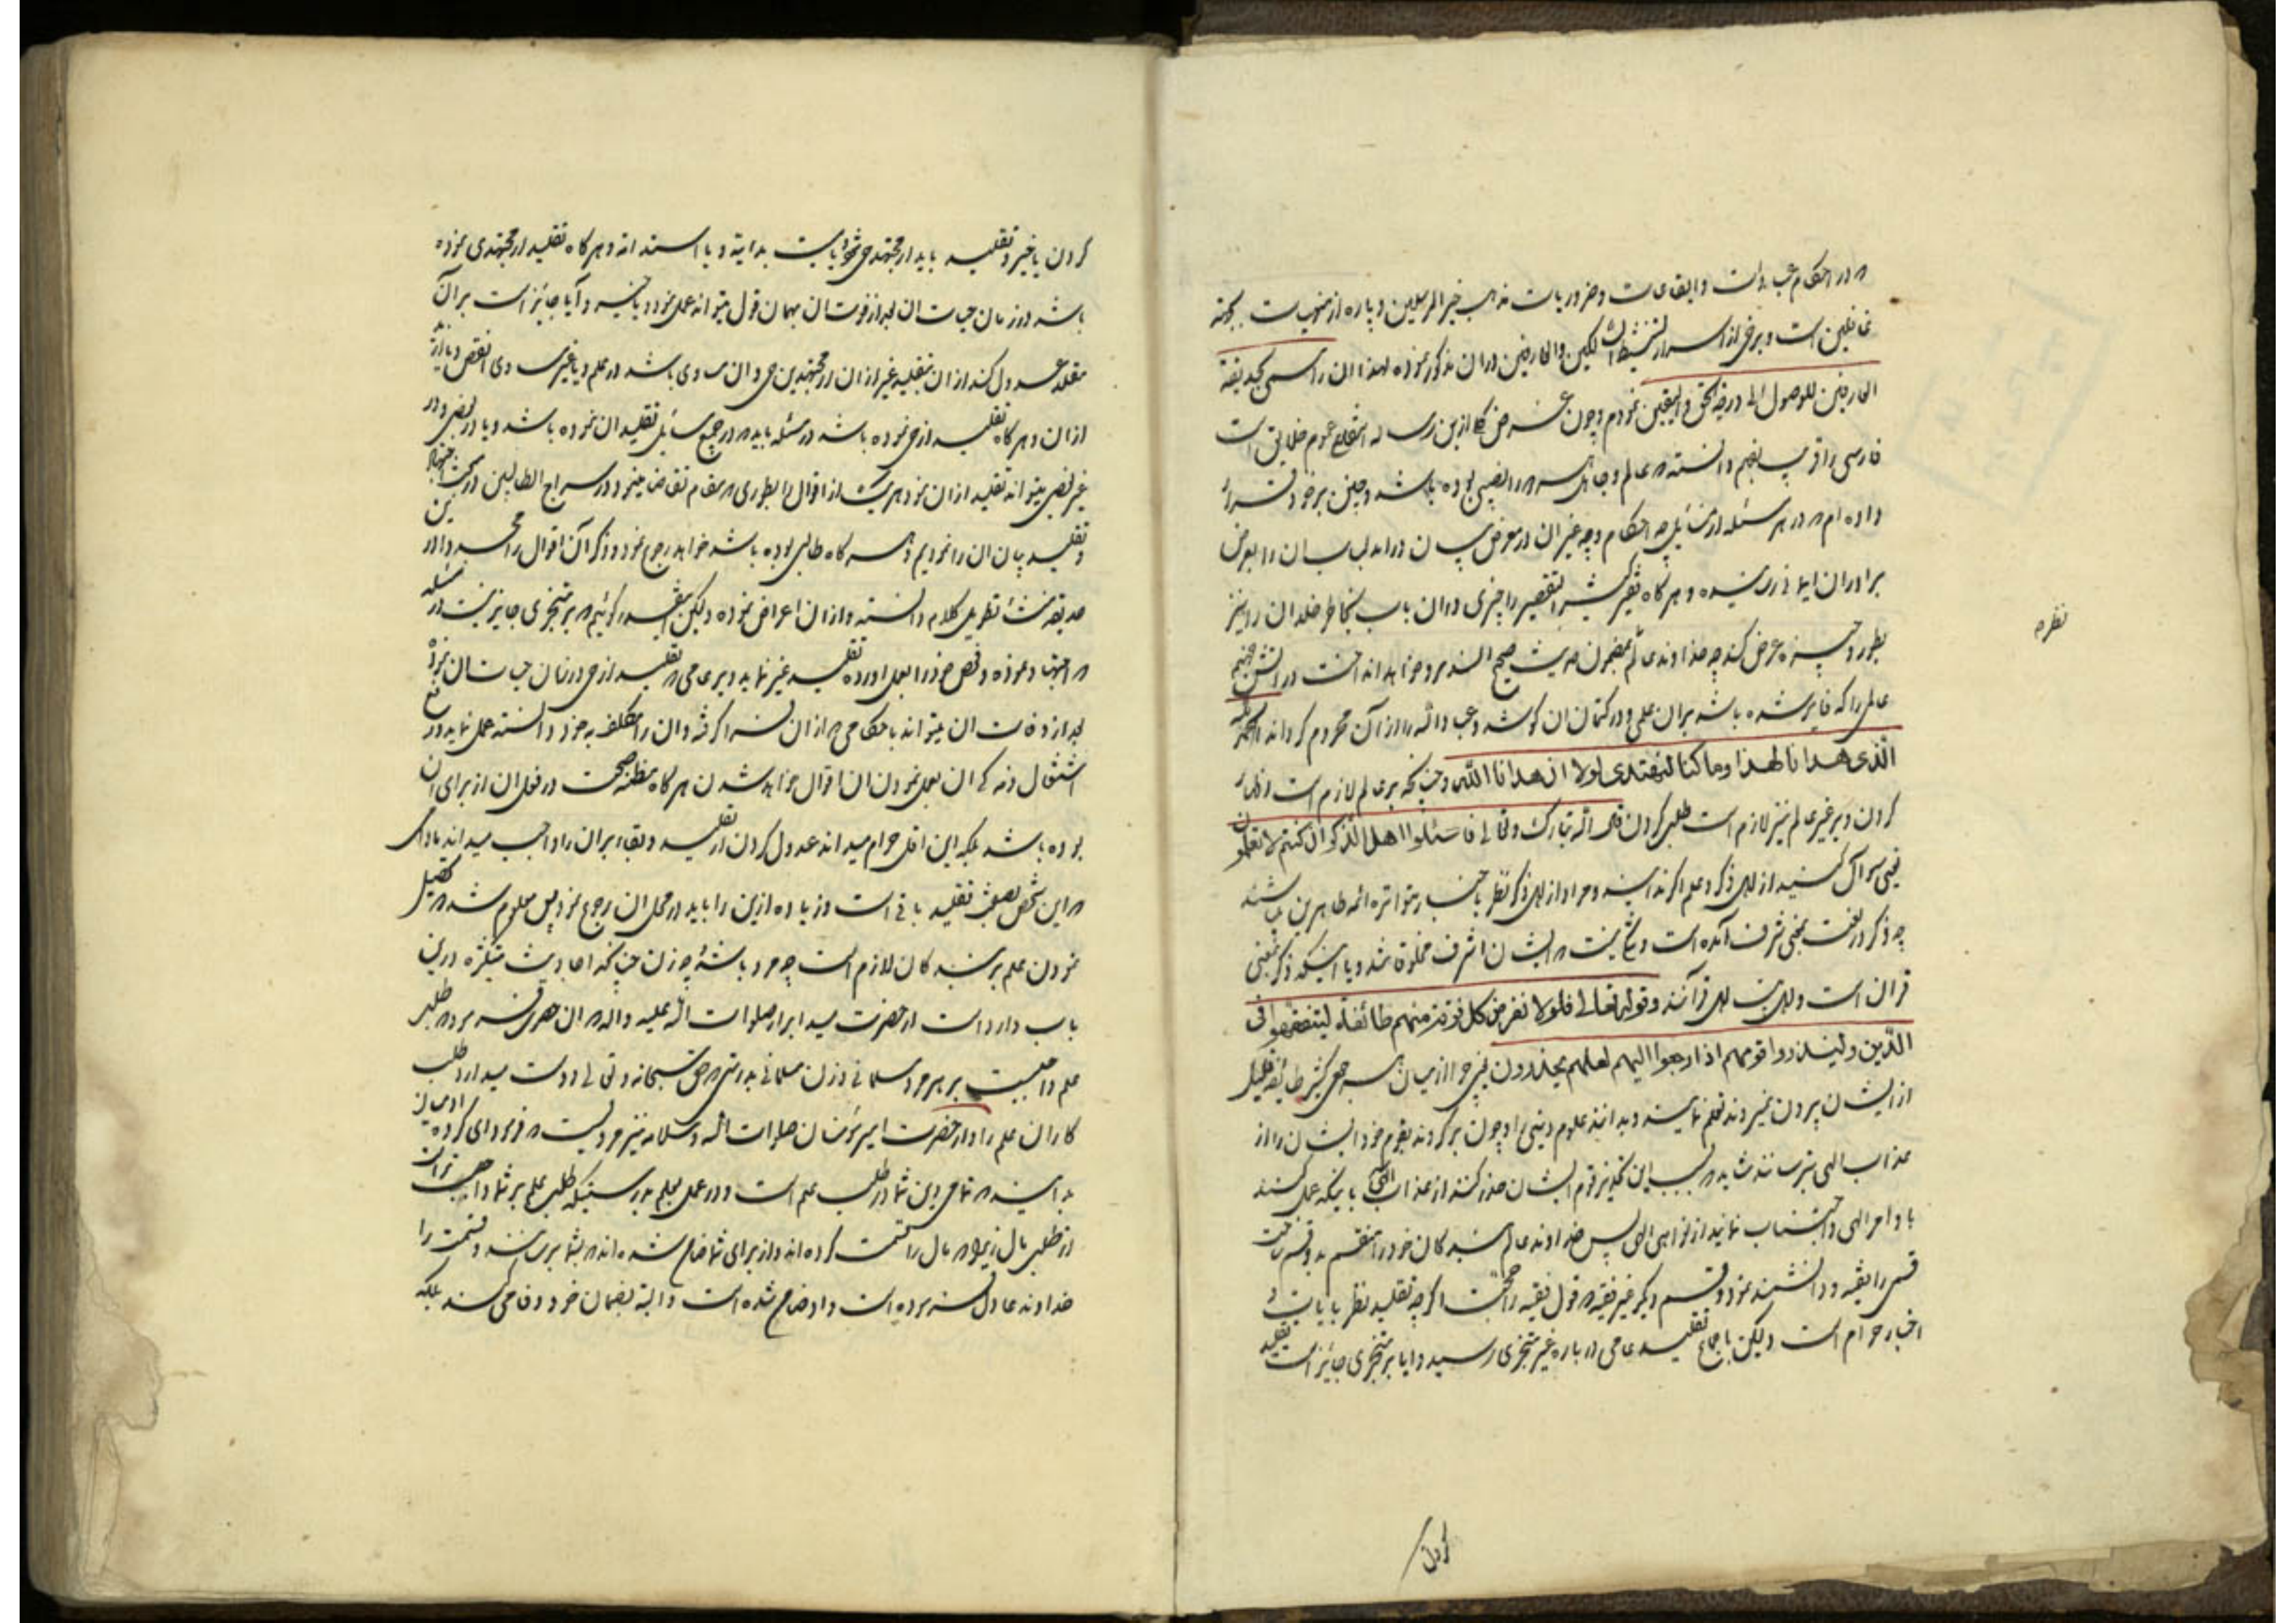 که در احکام عبادات و ایقاعات و ضروریات مذهب خیر المرسلین و پاره از منهیات بجهة
غافلین است و برخی از اسرار لتنشیط السالکین والعارفین در ان مذکور نموده لهذا ان را مسمی بحدیقة
العارفین للوصول الی درجة الحق والیقین نمودم و چون غرض کلی ازین رساله انتفاع عموم خلایق است
فارسی را اقرب بفهم دانسته که عالم و جاهل همه را نصیبی بوده باشد و چنین بر خود قرار
داده ام که در هر مسئله از مسائل چه احکام و چه غیر ان در معرض بیان دراید لباب ان را بعرض
برادران ایمانی رسانیده و هر گاه فقیر کثیر التقصیر را چیزی در ان باب بخاطر خلد ان را نیز
بطور وجیزه عرض کند چه خداوند عالم بمضمون حدیث صحیح السند سرو خواهد انداخت در اتش جهنم
عالمی را که فایز شده باشد بران علمی و در کتمان ان کوشد و عباد الله را از آن محروم گرداند الحمد لله
الذی هدانا لهذا وما کنا لنهتدی لولا ان هدانا الله و چنانچه بر عالم لازم است اظهار
کردن و بر غیر عالم نیز لازم است طلب کردن قال الله تبارک وتعالی فاسئلوا اهل الذکر ان کنتم لا تعلمون
یعنی سوال کنید از اهل ذکر و علم اگر ندانید و مراد از اهل ذکر نظر باخبار متواتره ائمه طاهرین میباشند
چه ذکر در لغت بمعنی شرف آمده است و شکی نیست که ایشان اشرف مخلوقاتند و یا اینکه ذکر بمعنی
قران است و اهل بیت اهل قرآنند وقوله تعالی فلولا نفر من کل فرقة منهم طائفة لیتفقهوا فی
الدین ولینذروا قومهم اذا رجعوا الیهم لعلهم یحذرون یعنی چرا از میان هر جمعی کثیر طایفه قلیل
از ایشان بیرون نمیروند تعلم نمایند و بدانند علوم دینی را و چون برگردند بقوم خود ایشان را از
عذاب الهی بترسانند شاید که بسبب این تحذیر قوم ایشان حذر کنند از عذاب الهی باینکه عمل کنند
باوامر الهی و اجتناب نمایند از نواهی الهی پس خداوند عالم بندگان خود را منقسم بدو قسم ساخت
قسمی را فقیه و دانشمند نمود و قسم دیگر غیر فقیه که قول فقیه را حجت اگر چه تقلید نظر بایات و
اخبار حرام است ولیکن باجماع تقلید عامی در باره غیر متجزی رسید و ایا بر متجزی جایز است تقلید
کردن
نظره
کردن یا غیر و تقلید باید از مجتهد حی شود یا میت بدایة و یا استدامة و هر گاه تقلید از مجتهدی نموده
باشد در زمان حیات ان بعد از فوت ان بهمان قول میتواند عمل نمود یا نه و آیا جائز است بر آن
مقلد عدول کند از ان بتقلید غیر از ان از مجتهدین حی و ان مساوی باشد در علم و یا غیر مساوی انقص و یا ازید
از ان و هر گاه تقلید از حی نموده باشد در مسئله باید که در جمیع مسائل تقلید ان نموده باشد و یا در بعضی دون
غیر بعضی میتواند تقلید از ان نمود هر یک از اقوال را بطوری که مقام تقاضا مینمود در سراج الطالبین در مبحث اجتهاد
و تقلید بیان ان را نمودیم هر گاه طالبی بوده باشد خواهد رجوع نمود و ذکر آن اقوال را مجددا در این
حدیقه منشأ تطویل کلام دانسته و از ان اعراض نموده ولیکن اینقدر گوئیم که بر متجزی جایز نیست در مسئله
که اجتهاد نموده و فحص خود را بعمل اورده تقلید غیر نماید و بر عامی که تقلید از حی در زمان حیات ان نموده
بعد از وفات ان میتواند باحکامی که از ان فرا گرفته و ان را مکلف به خود دانسته عمل نماید و رفع
اشتغال ذمه ان بعمل نمودن ان اقوال خواهد شد ان هر گاه مظنه صحت در قول ان از برای ان
بوده باشد بلکه این اقل حرام میداند عدول کردن از تقلید و بقاء بران را واجب میداند مادامی
که این شخص بصفت تقلید باقی است و زیاده ازین را باید در محل ان رجوع نمود پس معلوم شد که تحصیل
نمودن علم بر بندگان لازم است چه مرد باشد و چه زن چنانکه احادیث متکثره درین
باب وارد است از حضرت سید ابرار صلوات الله علیه واله که ان حضرت فرموده طلب
علم واجبست بر هر مرد مسلمانی و زن مسلمانی بدرستی که حق سبحانه و تعالی دوست میدارد طلب
کاران علم را و از حضرت امیر مؤمنان صلوات الله وسلامه نیز مرویست که فرمود ای گروه ادمیان
بدانید که تمامی دین شما در طلب علم است و در عمل بعلم بدرستیکه طلب علم بر شما واجب تر است
از طلب مال زیرا که مال را قسمت کرده اند و از برای شما ضامن شده اند که بشما برسانند و قسمت را
خداوند عادل کرده است و او ضامن شده است و البته بضمان خود وفا می کند بلکه